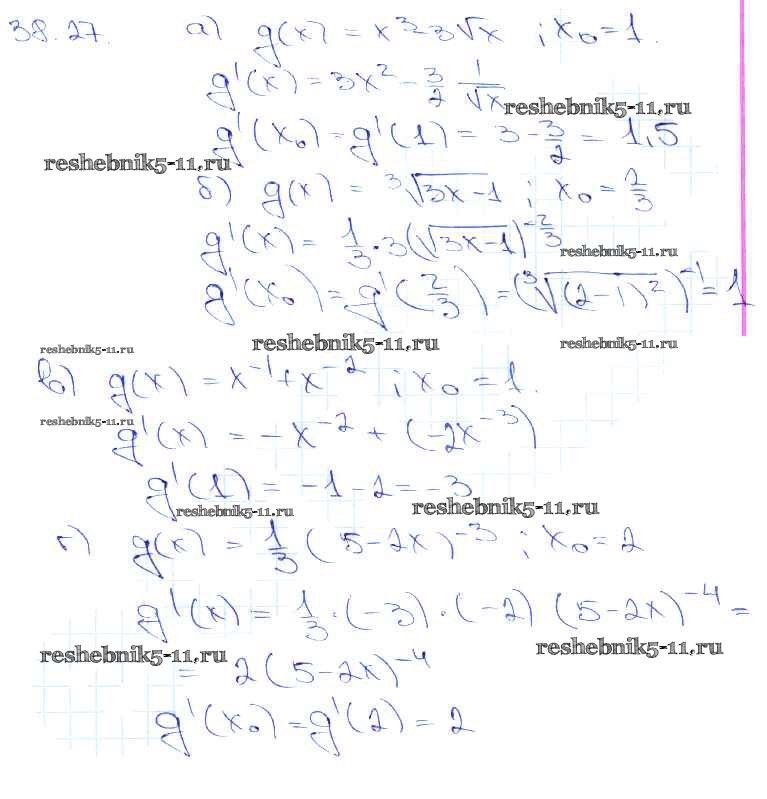 38.27. а) g(x) = x³-3√x ; x₀=1.
g'(x) = 3x² - 3/2 1/√x
reshebnik5-11.ru
g'(x₀) = g'(1) = 3 - 3/2 = 1,5
reshebnik5-11.ru
б) g(x) = ³√(3x-1) ; x₀ = 2/3
g'(x) = 1/3 · 3(√(3x-1))^(-2/3)
reshebnik5-11.ru
g'(x₀) = g'(2/3) = (³√((2-1)²))⁻¹ = 1
reshebnik5-11.ru reshebnik5-11.ru reshebnik5-11.ru
в) g(x) = x⁻¹+x⁻² ; x₀ = 1.
reshebnik5-11.ru
g'(x) = -x⁻² + (-2x⁻³)
g'(1) = -1-2 = -3
reshebnik5-11.ru reshebnik5-11.ru
г) g(x) = 1/3 (5-2x)⁻³ ; x₀=2
g'(x) = 1/3 · (-3) · (-2) (5-2x)⁻⁴ =
reshebnik5-11.ru reshebnik5-11.ru
= 2(5-2x)⁻⁴
g'(x₀) = g'(2) = 2